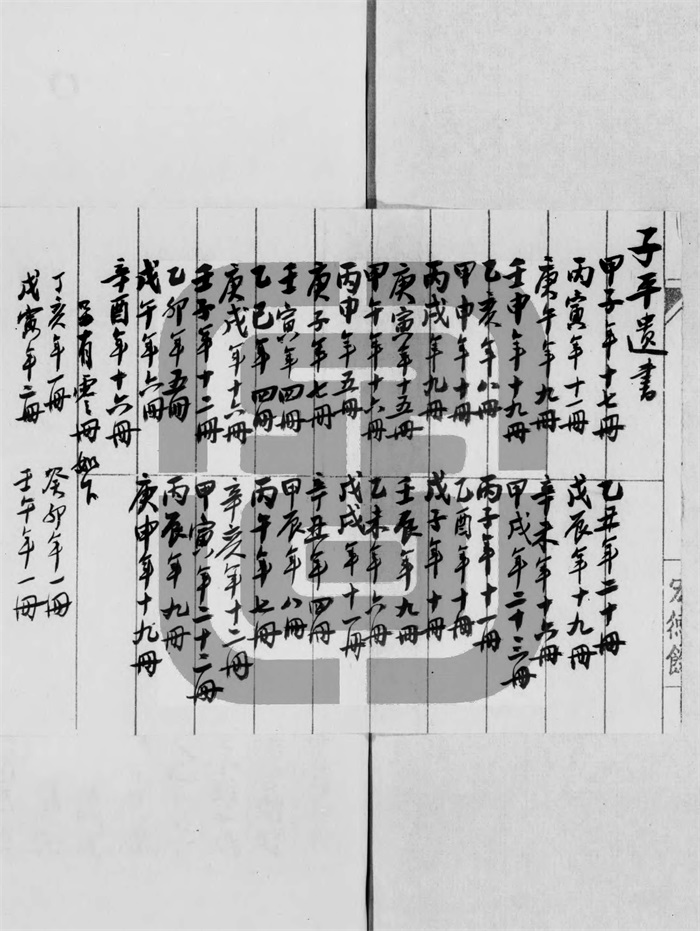 子平遺書
甲子年十七冊 乙丑年二十冊
丙寅年十一冊 戊辰年十九冊
庚午年九冊 辛未年十六冊
壬申年十九冊 甲戌年二十三冊
乙亥年八冊 丙子年十一冊
甲申年十冊 乙酉年十冊
丙戌年九冊 戊子年十冊
庚寅年十五冊 壬辰年九冊
甲午年十六冊 乙未年六冊
丙申年五冊 戊戌年十一冊
庚子年七冊 辛丑年四冊
壬寅年四冊 甲辰年八冊
乙巳年四冊 丙午年七冊
庚戌年十六冊 辛亥年十二冊
壬子年十二冊 甲寅年二十二冊
乙卯年五冊 丙辰年九冊
戊午年六冊 庚申年十九冊
辛酉年十六冊
另有零冊如下
丁亥年一冊 癸卯年一冊
戊寅年二冊 壬午年一冊